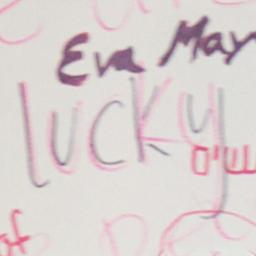 Eva May
lucky